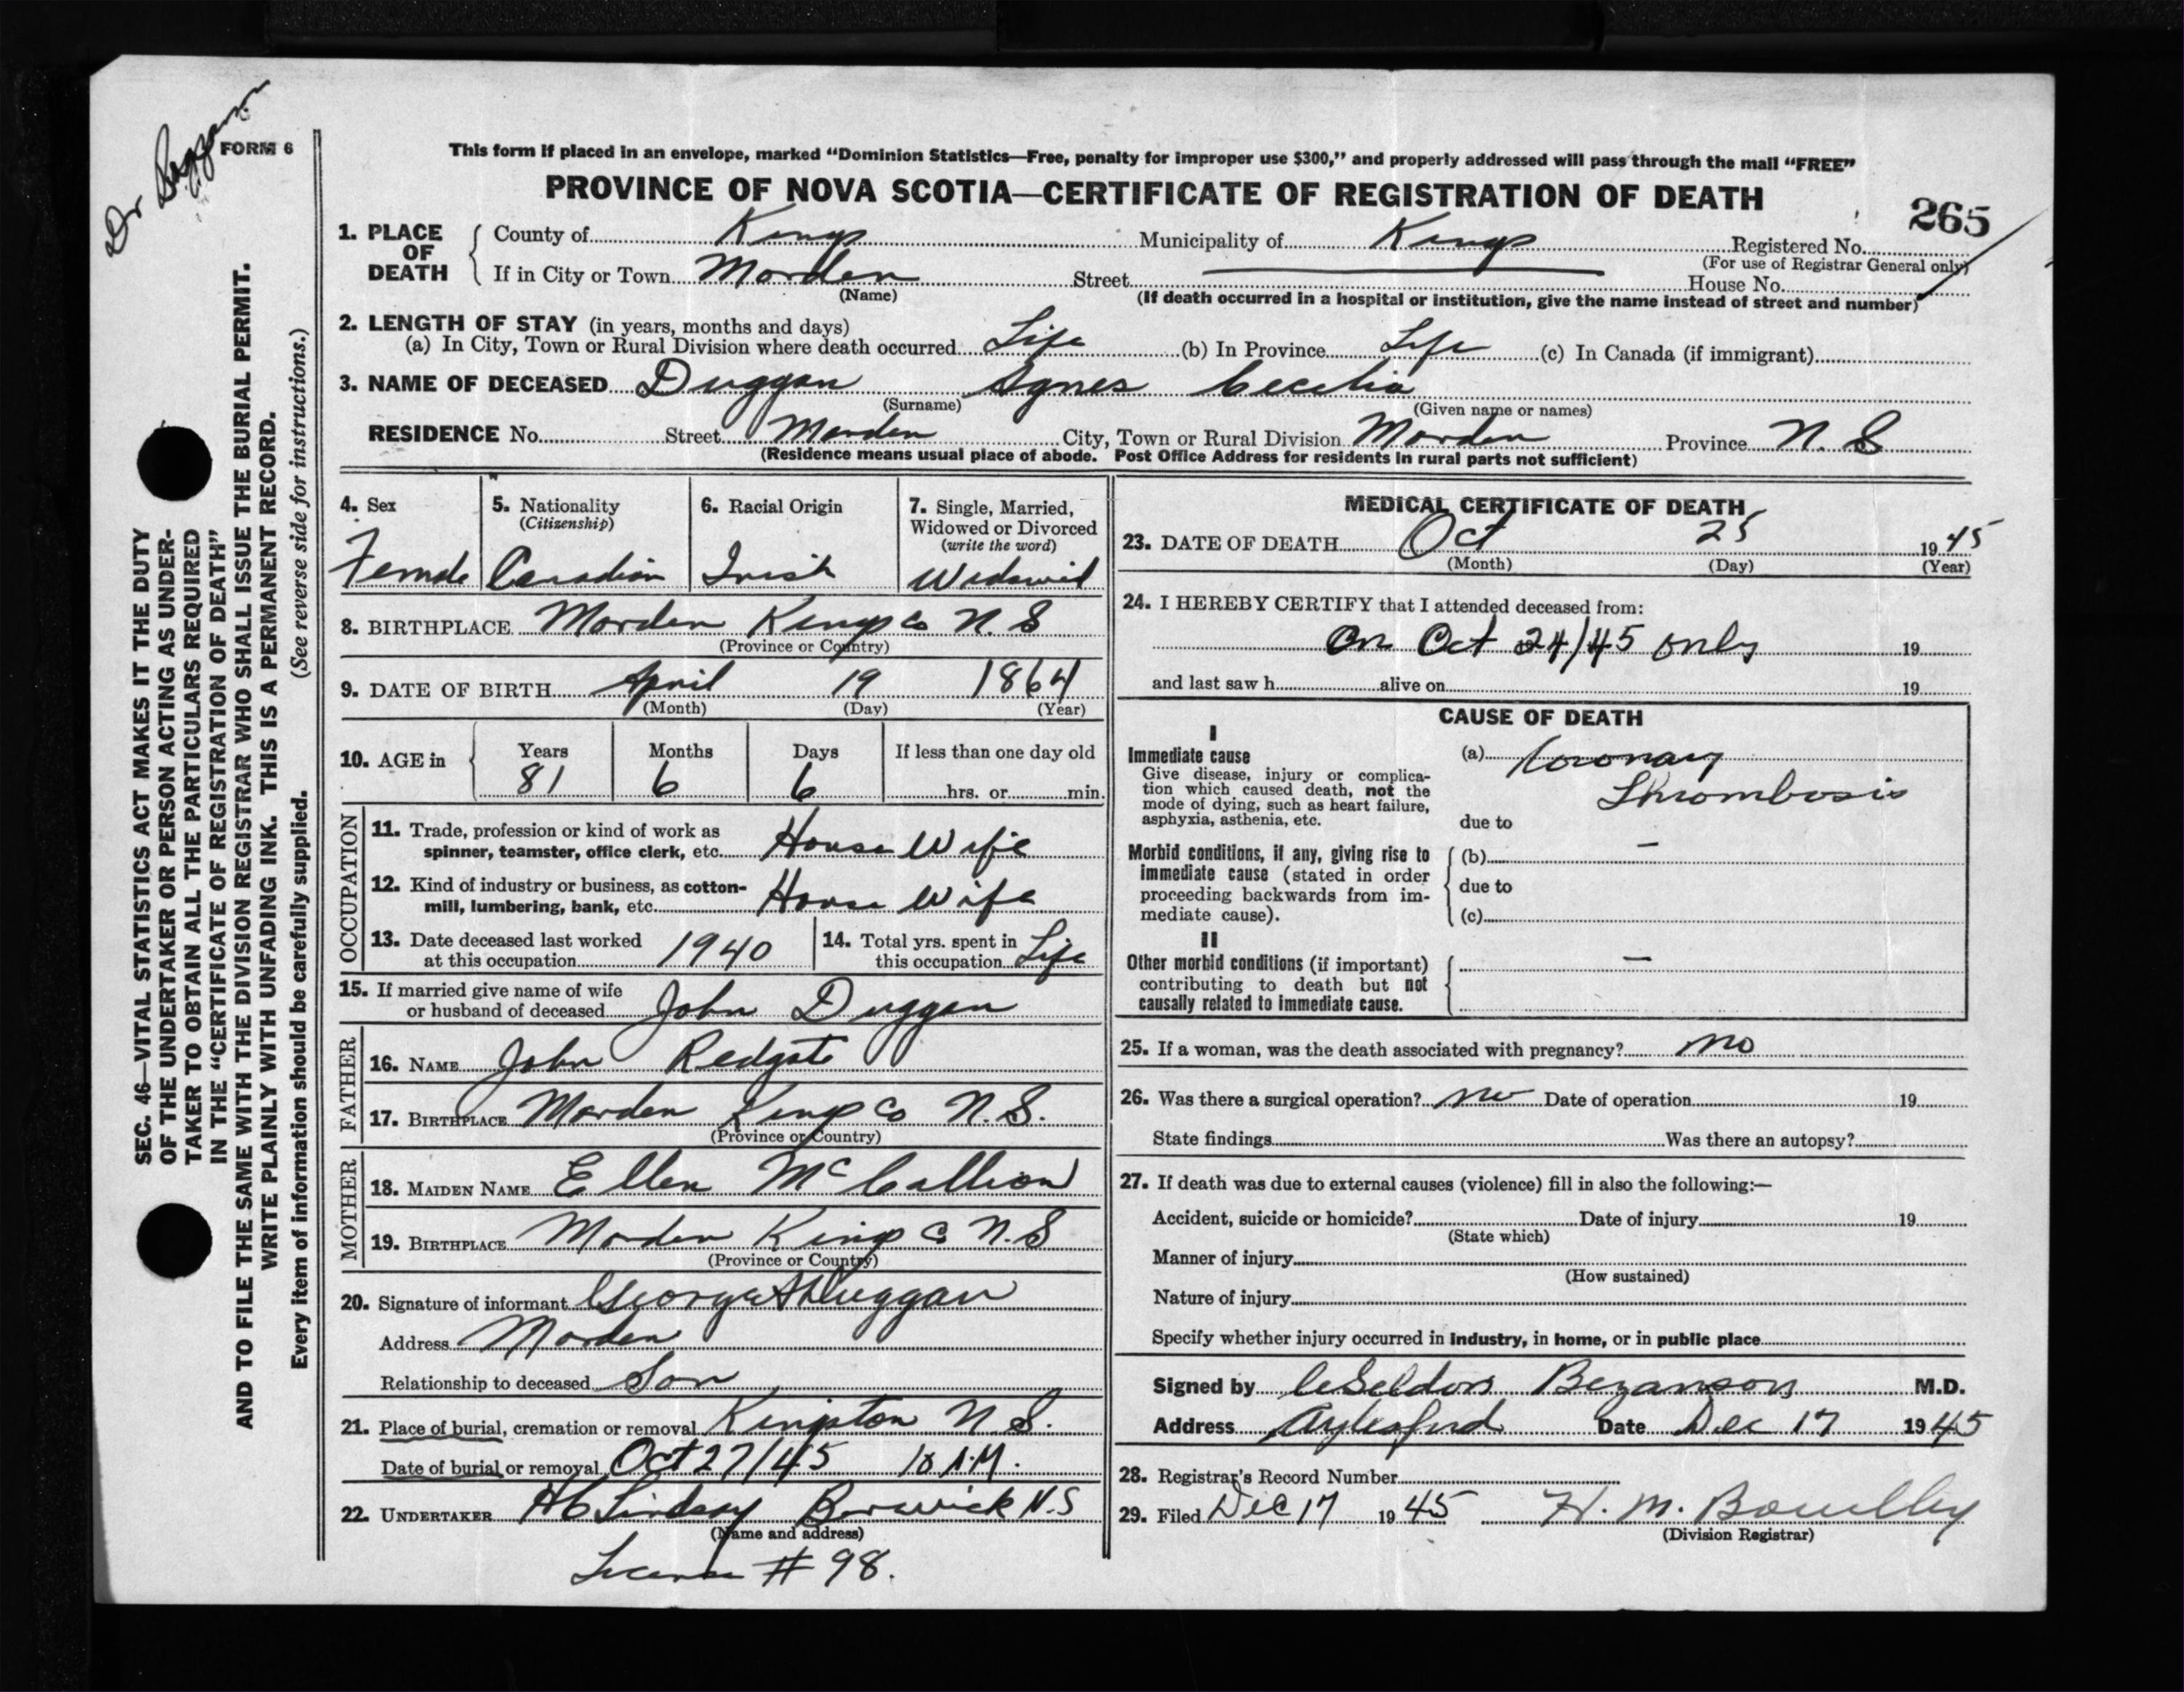 Dr
FORM 6
This form if placed in an envelope, marked “Dominion Statistics—Free, penalty for improper use $300,” and properly addressed will pass through the mail “FREE”
PROVINCE OF NOVA SCOTIA—CERTIFICATE OF REGISTRATION OF DEATH
265
1. PLACE OF DEATH County of Kings Municipality of Kings Registered No.
(For use of Registrar General only)
If in City or Town Morden Street House No.
(Name) (If death occurred in a hospital or institution, give the name instead of street and number)
2. LENGTH OF STAY (in years, months and days)
(a) In City, Town or Rural Division where death occurred Life (b) In Province Life (c) In Canada (if immigrant)
3. NAME OF DECEASED Duggan Agnes Cecelia
(Surname) (Given name or names)
RESIDENCE No. Street Morden City, Town or Rural Division Morden Province N. S
(Residence means usual place of abode. Post Office Address for residents in rural parts not sufficient)
4. Sex 5. Nationality 6. Racial Origin 7. Single, Married,
(Citizenship) Widowed or Divorced
(write the word)
Female Canadian Irish Widowed
8. BIRTHPLACE Morden Kings Co N. S
(Province or Country)
9. DATE OF BIRTH April 19 1864
(Month) (Day) (Year)
10. AGE in Years Months Days If less than one day old
81 6 6 hrs. or min.
OCCUPATION
11. Trade, profession or kind of work as
spinner, teamster, office clerk, etc. House Wife
12. Kind of industry or business, as cotton-
mill, lumbering, bank, etc. House Wife
13. Date deceased last worked 14. Total yrs. spent in
at this occupation 1940 this occupation Life
15. If married give name of wife
or husband of deceased John Duggan
FATHER
16. NAME John Redgate
17. BIRTHPLACE Morden Kings Co N. S.
(Province or Country)
MOTHER
18. MAIDEN NAME Ellen McCallion
19. BIRTHPLACE Morden Kings C N. S
(Province or Country)
20. Signature of informant George A Duggan
Address Morden
Relationship to deceased Son
21. Place of burial, cremation or removal Kingston N. S.
Date of burial or removal Oct 27/45 10 A.M.
22. UNDERTAKER H C Lindsay Berwick N.S
(Name and address)
License # 98.
MEDICAL CERTIFICATE OF DEATH
23. DATE OF DEATH Oct 25 1945
(Month) (Day) (Year)
24. I HEREBY CERTIFY that I attended deceased from:
On Oct 24/45 only 19
and last saw h alive on 19
CAUSE OF DEATH
I
Immediate cause (a) Coronary
Give disease, injury or complica-
tion which caused death, not the Thrombosis
mode of dying, such as heart failure,
asphyxia, asthenia, etc. due to
Morbid conditions, if any, giving rise to (b) —
immediate cause (stated in order
proceeding backwards from im- due to
mediate cause). (c)
II
Other morbid conditions (if important) —
contributing to death but not
causally related to immediate cause.
25. If a woman, was the death associated with pregnancy? no
26. Was there a surgical operation? no Date of operation 19
State findings Was there an autopsy?
27. If death was due to external causes (violence) fill in also the following:—
Accident, suicide or homicide? Date of injury 19
(State which)
Manner of injury
(How sustained)
Nature of injury
Specify whether injury occurred in industry, in home, or in public place
Signed by Bezanson M.D.
Address Aylesford Date Dec 17 1945
28. Registrar's Record Number
29. Filed Dec 17 1945 H. M.
(Division Registrar)
SEC. 46—VITAL STATISTICS ACT MAKES IT THE DUTY
OF THE UNDERTAKER OR PERSON ACTING AS UNDER-
TAKER TO OBTAIN ALL THE PARTICULARS REQUIRED
IN THE “CERTIFICATE OF REGISTRATION OF DEATH”
AND TO FILE THE SAME WITH THE DIVISION REGISTRAR WHO SHALL ISSUE THE BURIAL PERMIT.
WRITE PLAINLY WITH UNFADING INK. THIS IS A PERMANENT RECORD.
Every item of information should be carefully supplied. (See reverse side for instructions.)